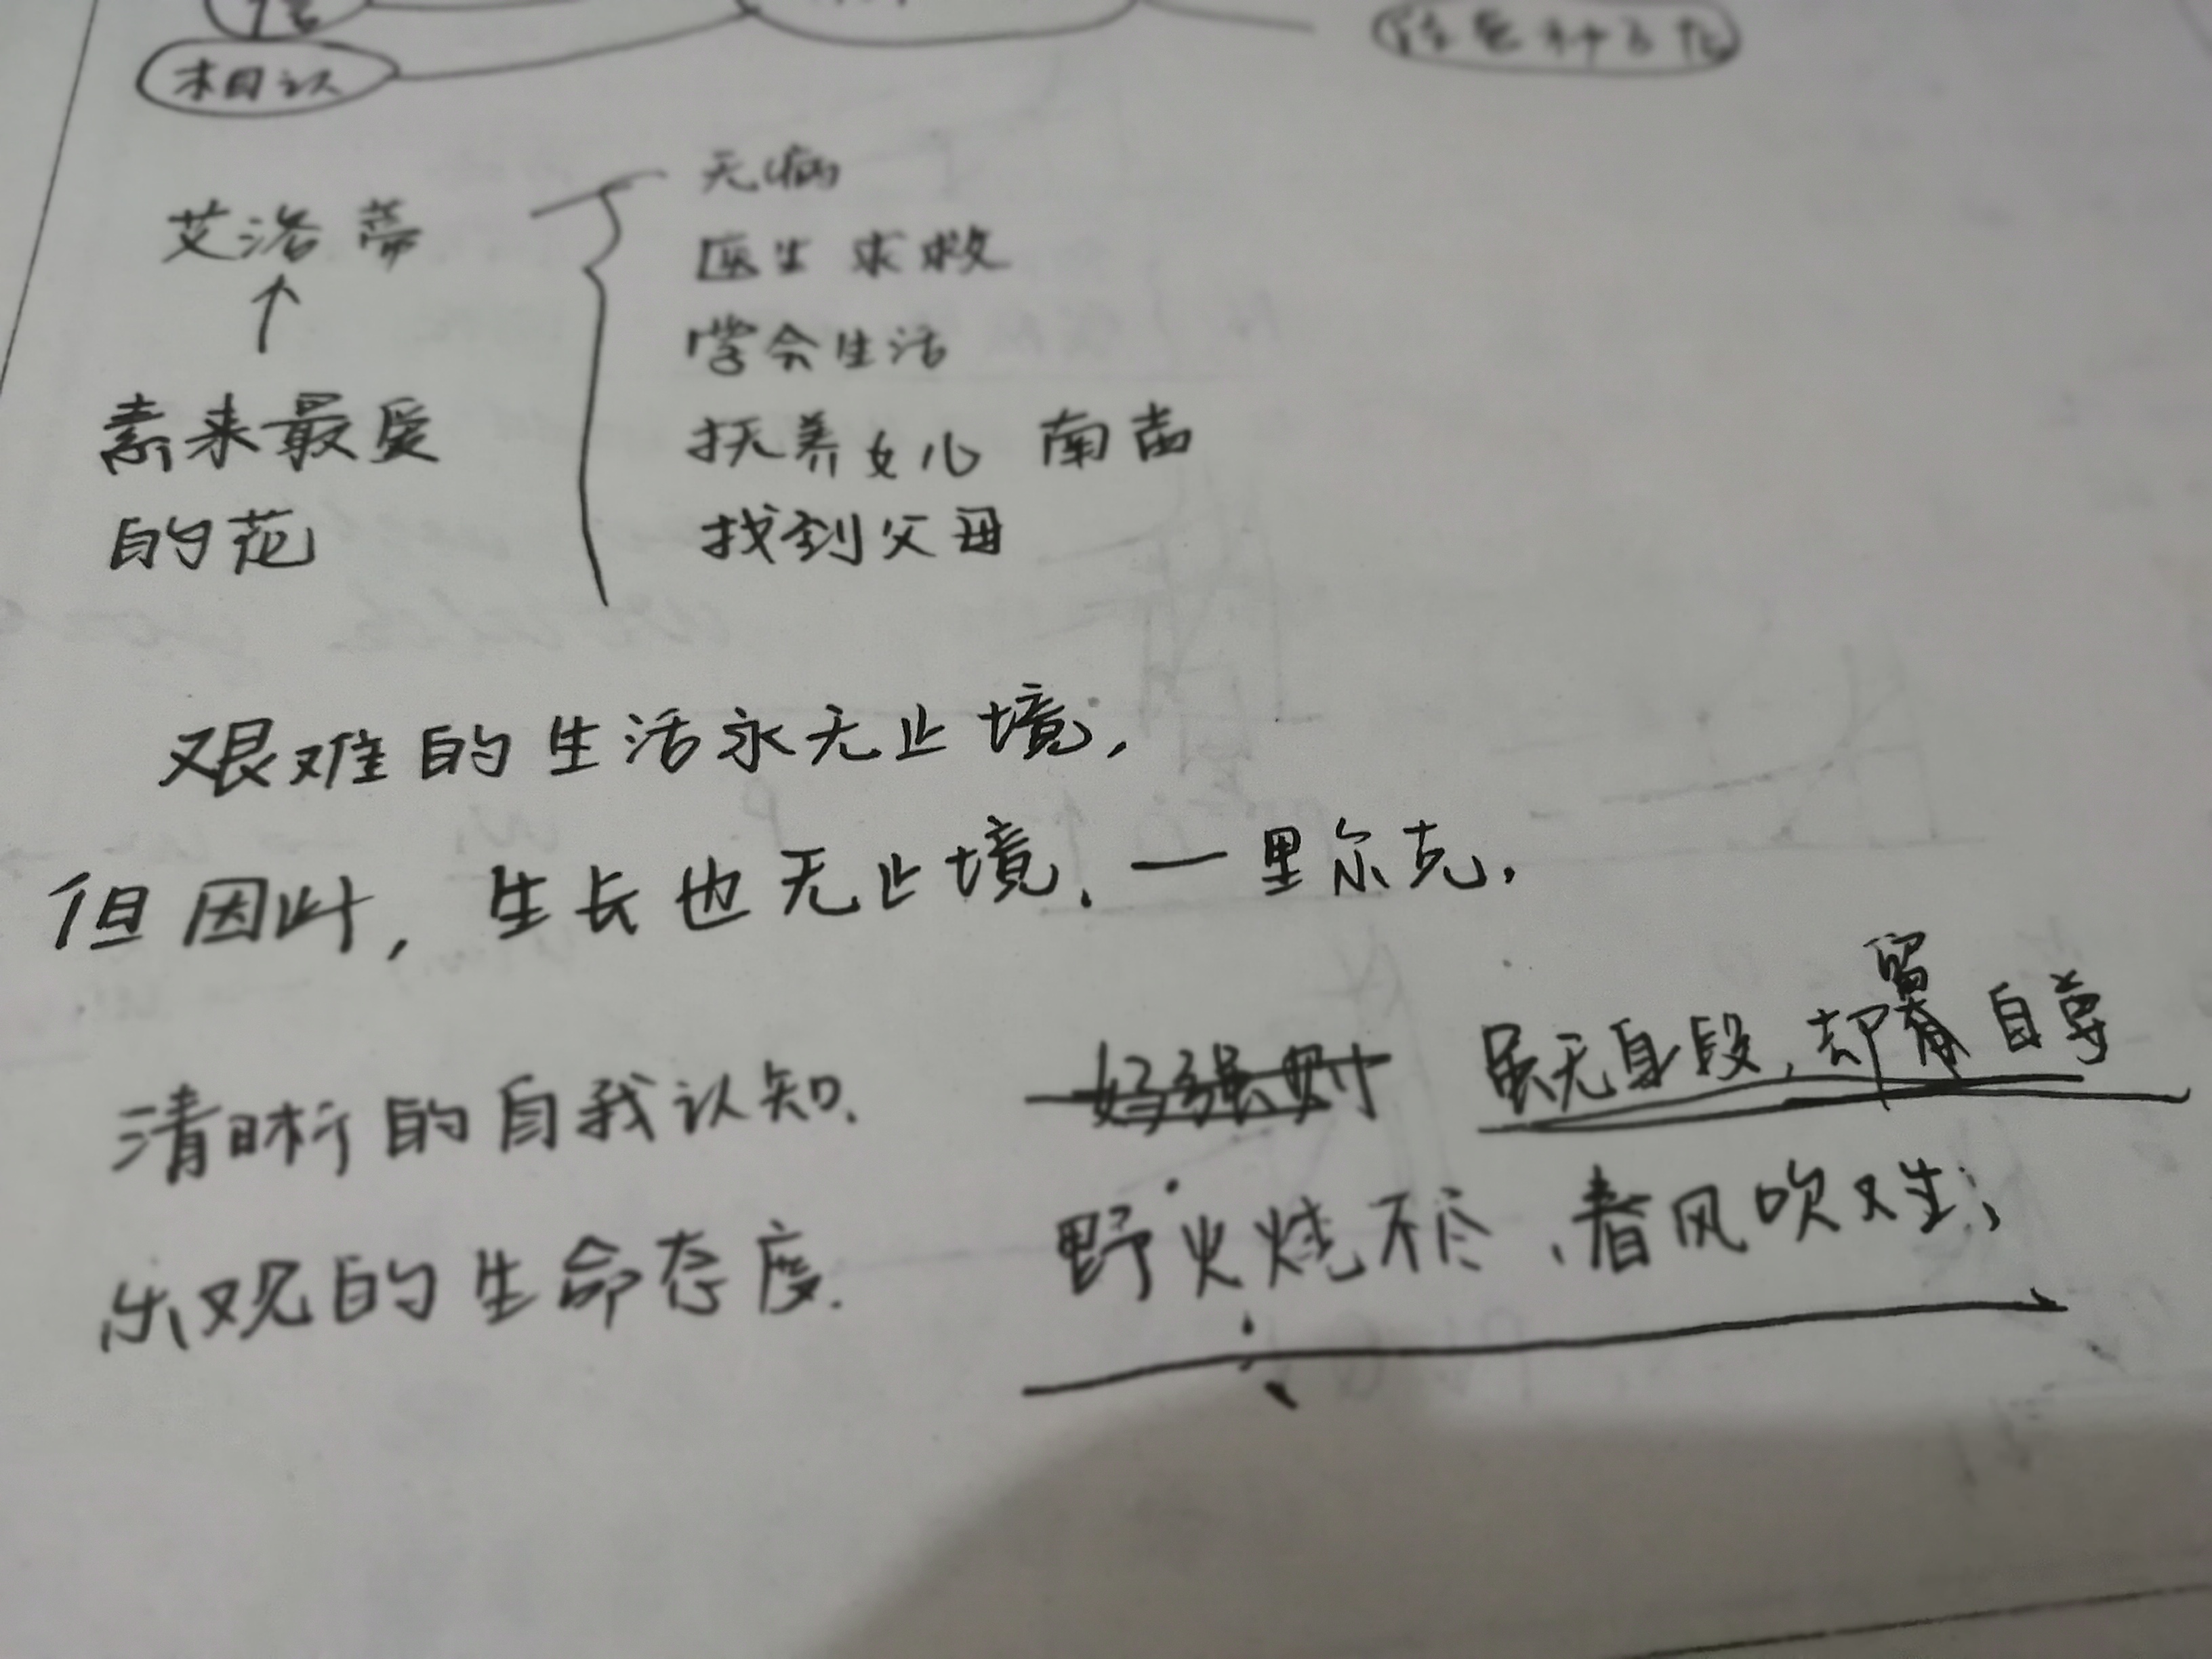 相认
无病
艾洛蒂
医生求救
学会生活
素来最爱
的花
抚养女儿 南茜
找到父母
艰难的生活永无止境,
但因此, 生长也无止境. — 里尔克.
虽无身段, 却留自尊
清晰的自我认知.
野火烧不尽, 春风吹又生;
乐观的生命态度.